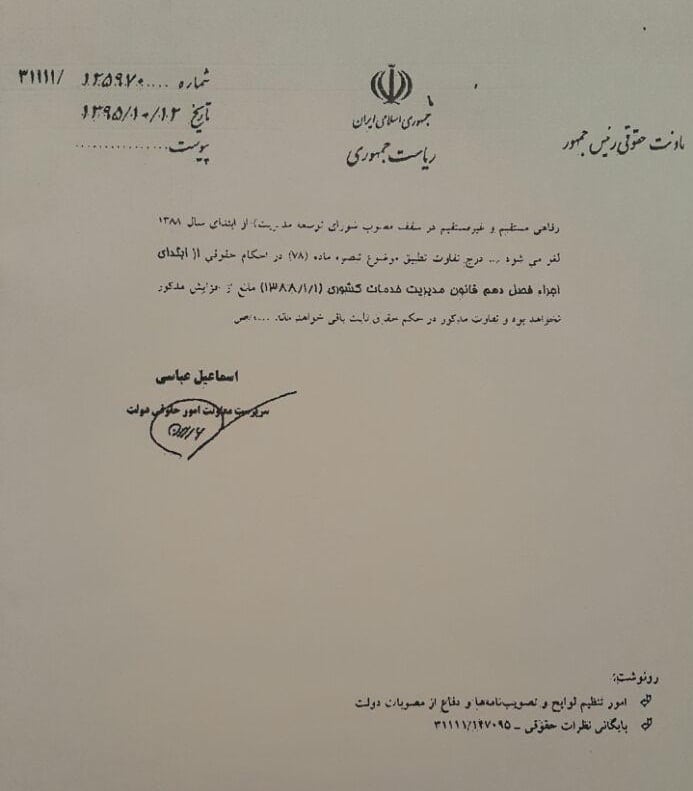 شماره ۱۲۵۹۷۰ /۳۱۱۱۱
تاریخ ۱۳۹۵/۱۰/۱۲
پیوست
جمهوری اسلامی ایران
ریاست جمهوری
معاونت حقوقی رئیس جمهور
رفاهی مستقیم و غیرمستقیم در سقف مصوب شورای توسعه مدیریت) از ابتدای سال ۱۳۸۸
لغو می شود ... درج تفاوت تطبیق موضوع تبصره ماده (۷۸) در احکام حقوقی از ابتدای
اجراء فصل دهم قانون مدیریت خدمات کشوری (۱۳۸۸/۱/۱) مانع از افزایش مذکور
نخواهد بود و تفاوت مذکور در حکم حقوق ثابت باقی خواهد ماند.
اسماعیل عباسی
سرپرست معاونت امور حقوقی دولت
رونوشت:
امور تنظیم لوایح و تصویب‌نامه‌ها و دفاع از مصوبات دولت
بایگانی نظرات حقوقی ـ ۳۱۱۱۱/۱۴۷۰۹۵